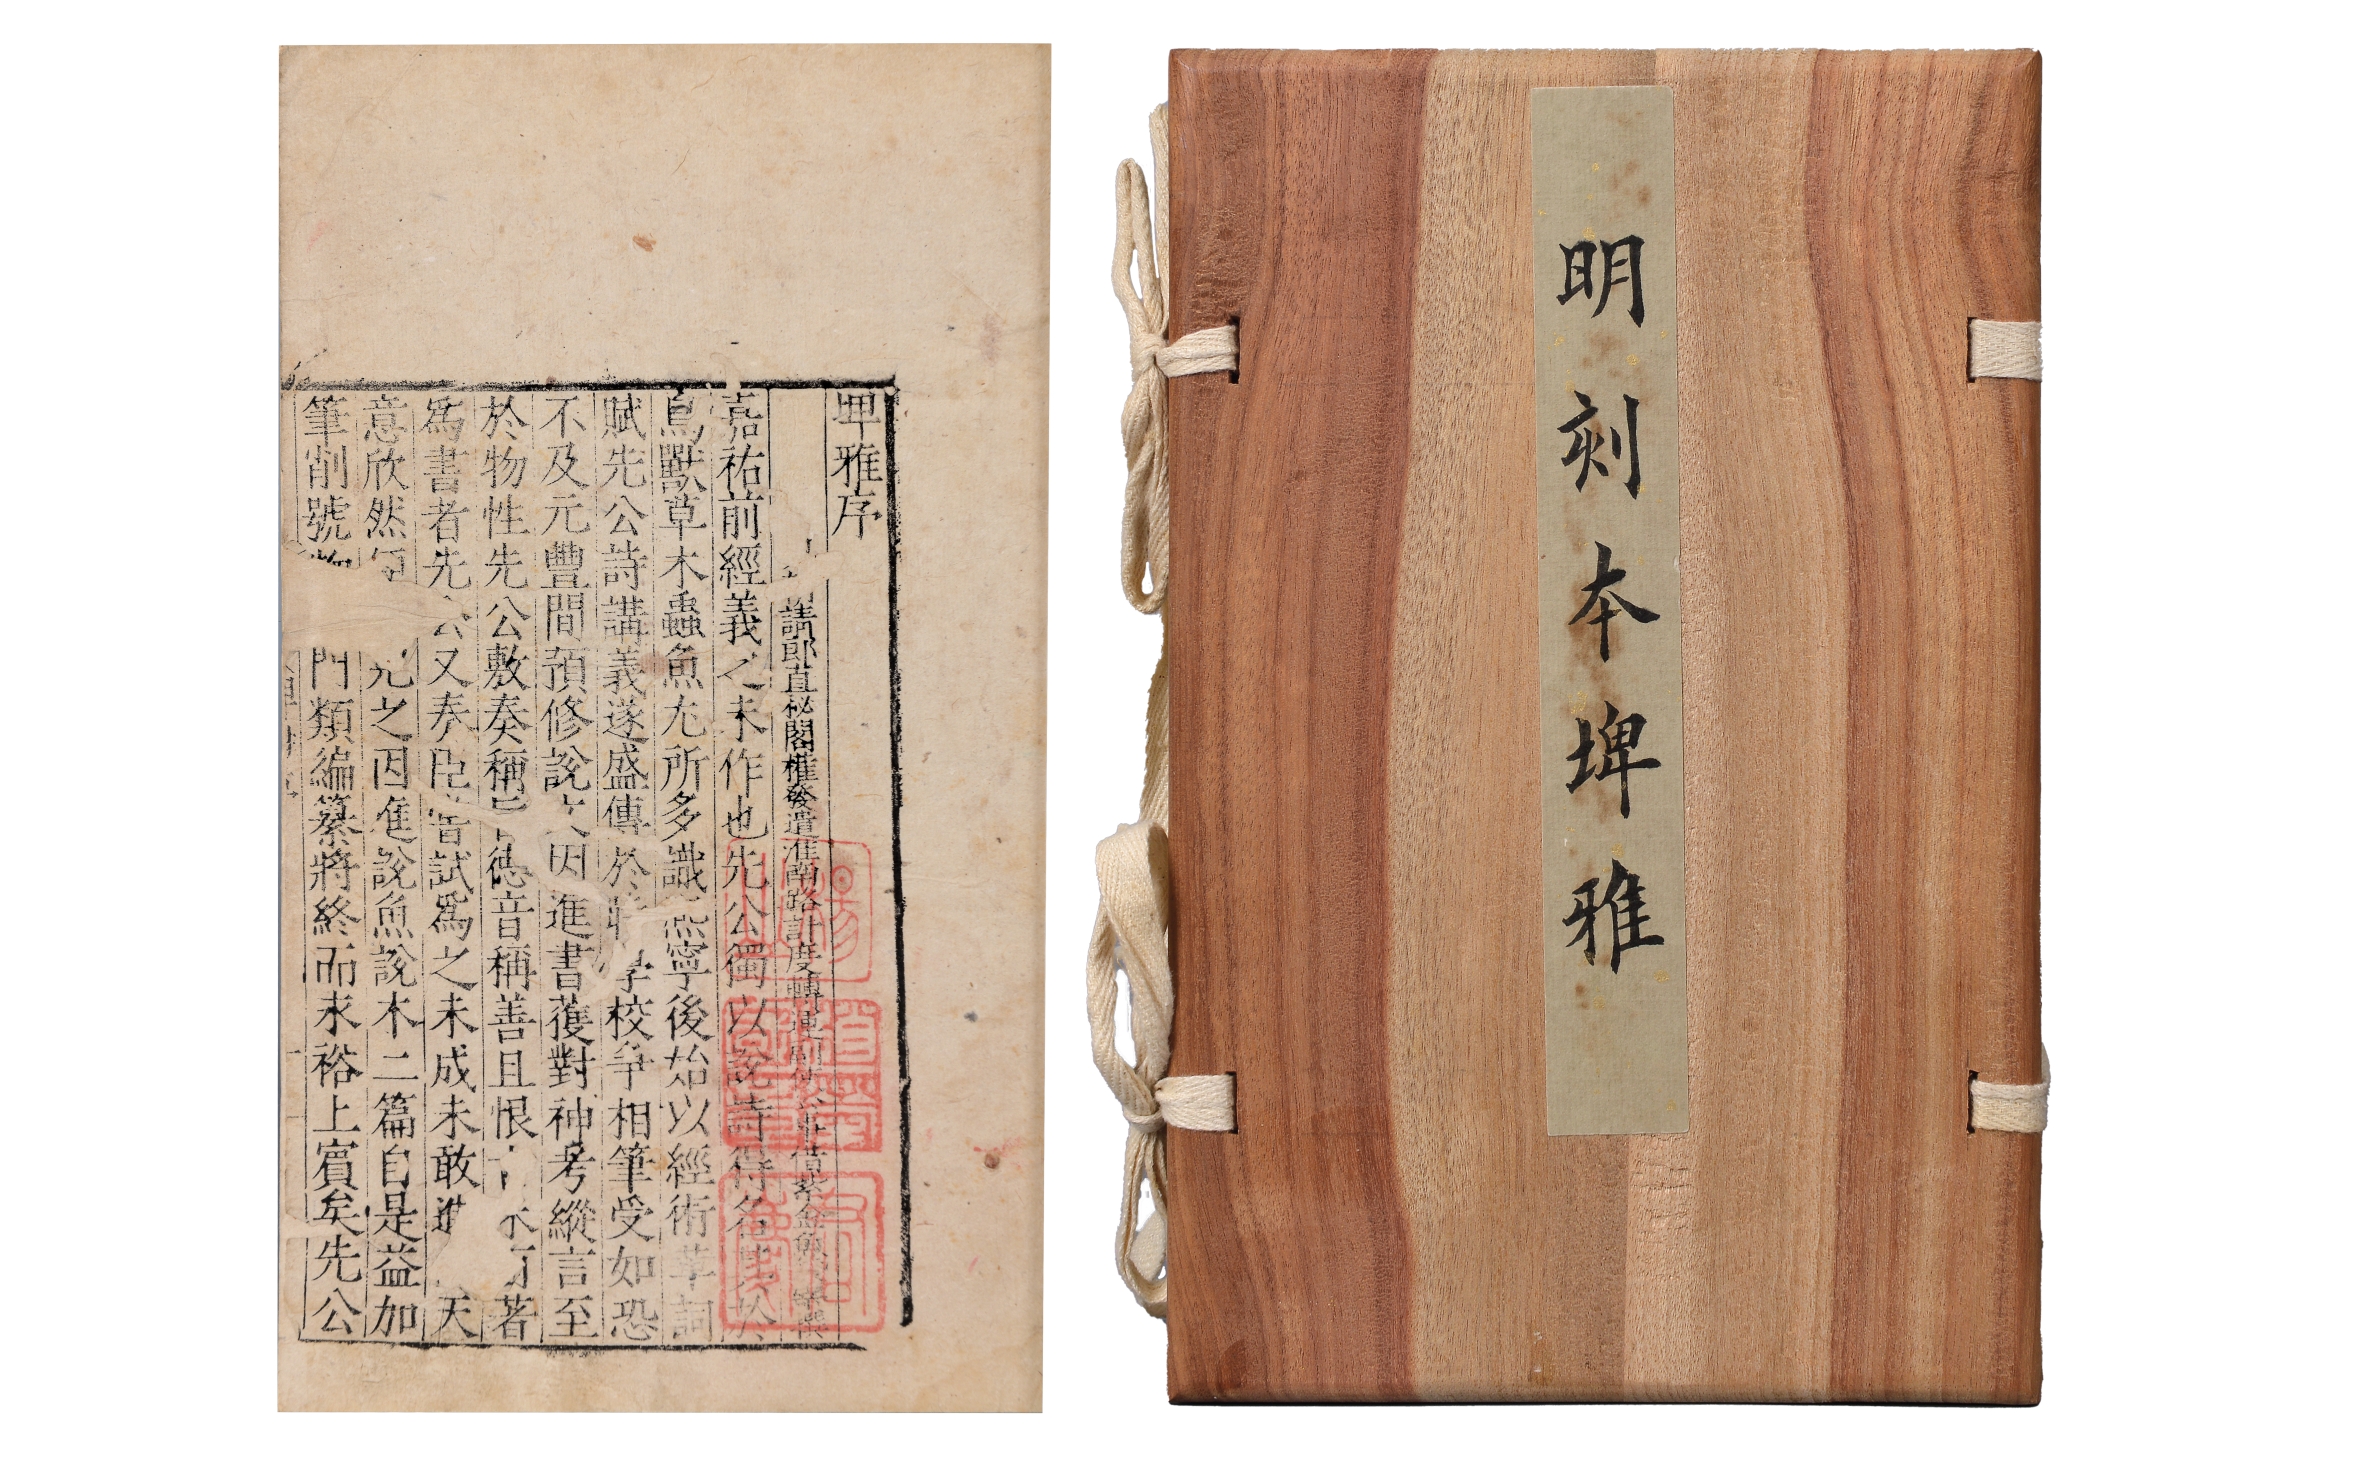 埤雅序
請郎直祕閣權發遣淮南路計度轉運副使 借紫金魚 宰撰
嘉祐前經義之未作也先公獨以說詩得名其於
鳥獸草木蟲魚尤所多識熙寧後始以經術革詞
賦先公詩講義遂盛傳於 學校爭相筆受如恐
不及元豐間預修說文因進書獲對神考縱言至
於物性先公敷奏稱 德音稱善且恨 著
爲書者先公又奏臣嘗試爲之未成未敢進 天
意欣然 之因進說魚說木二篇自是益加
筆削號 門類編纂將終而永裕上賓矣先公
明刻本埤雅